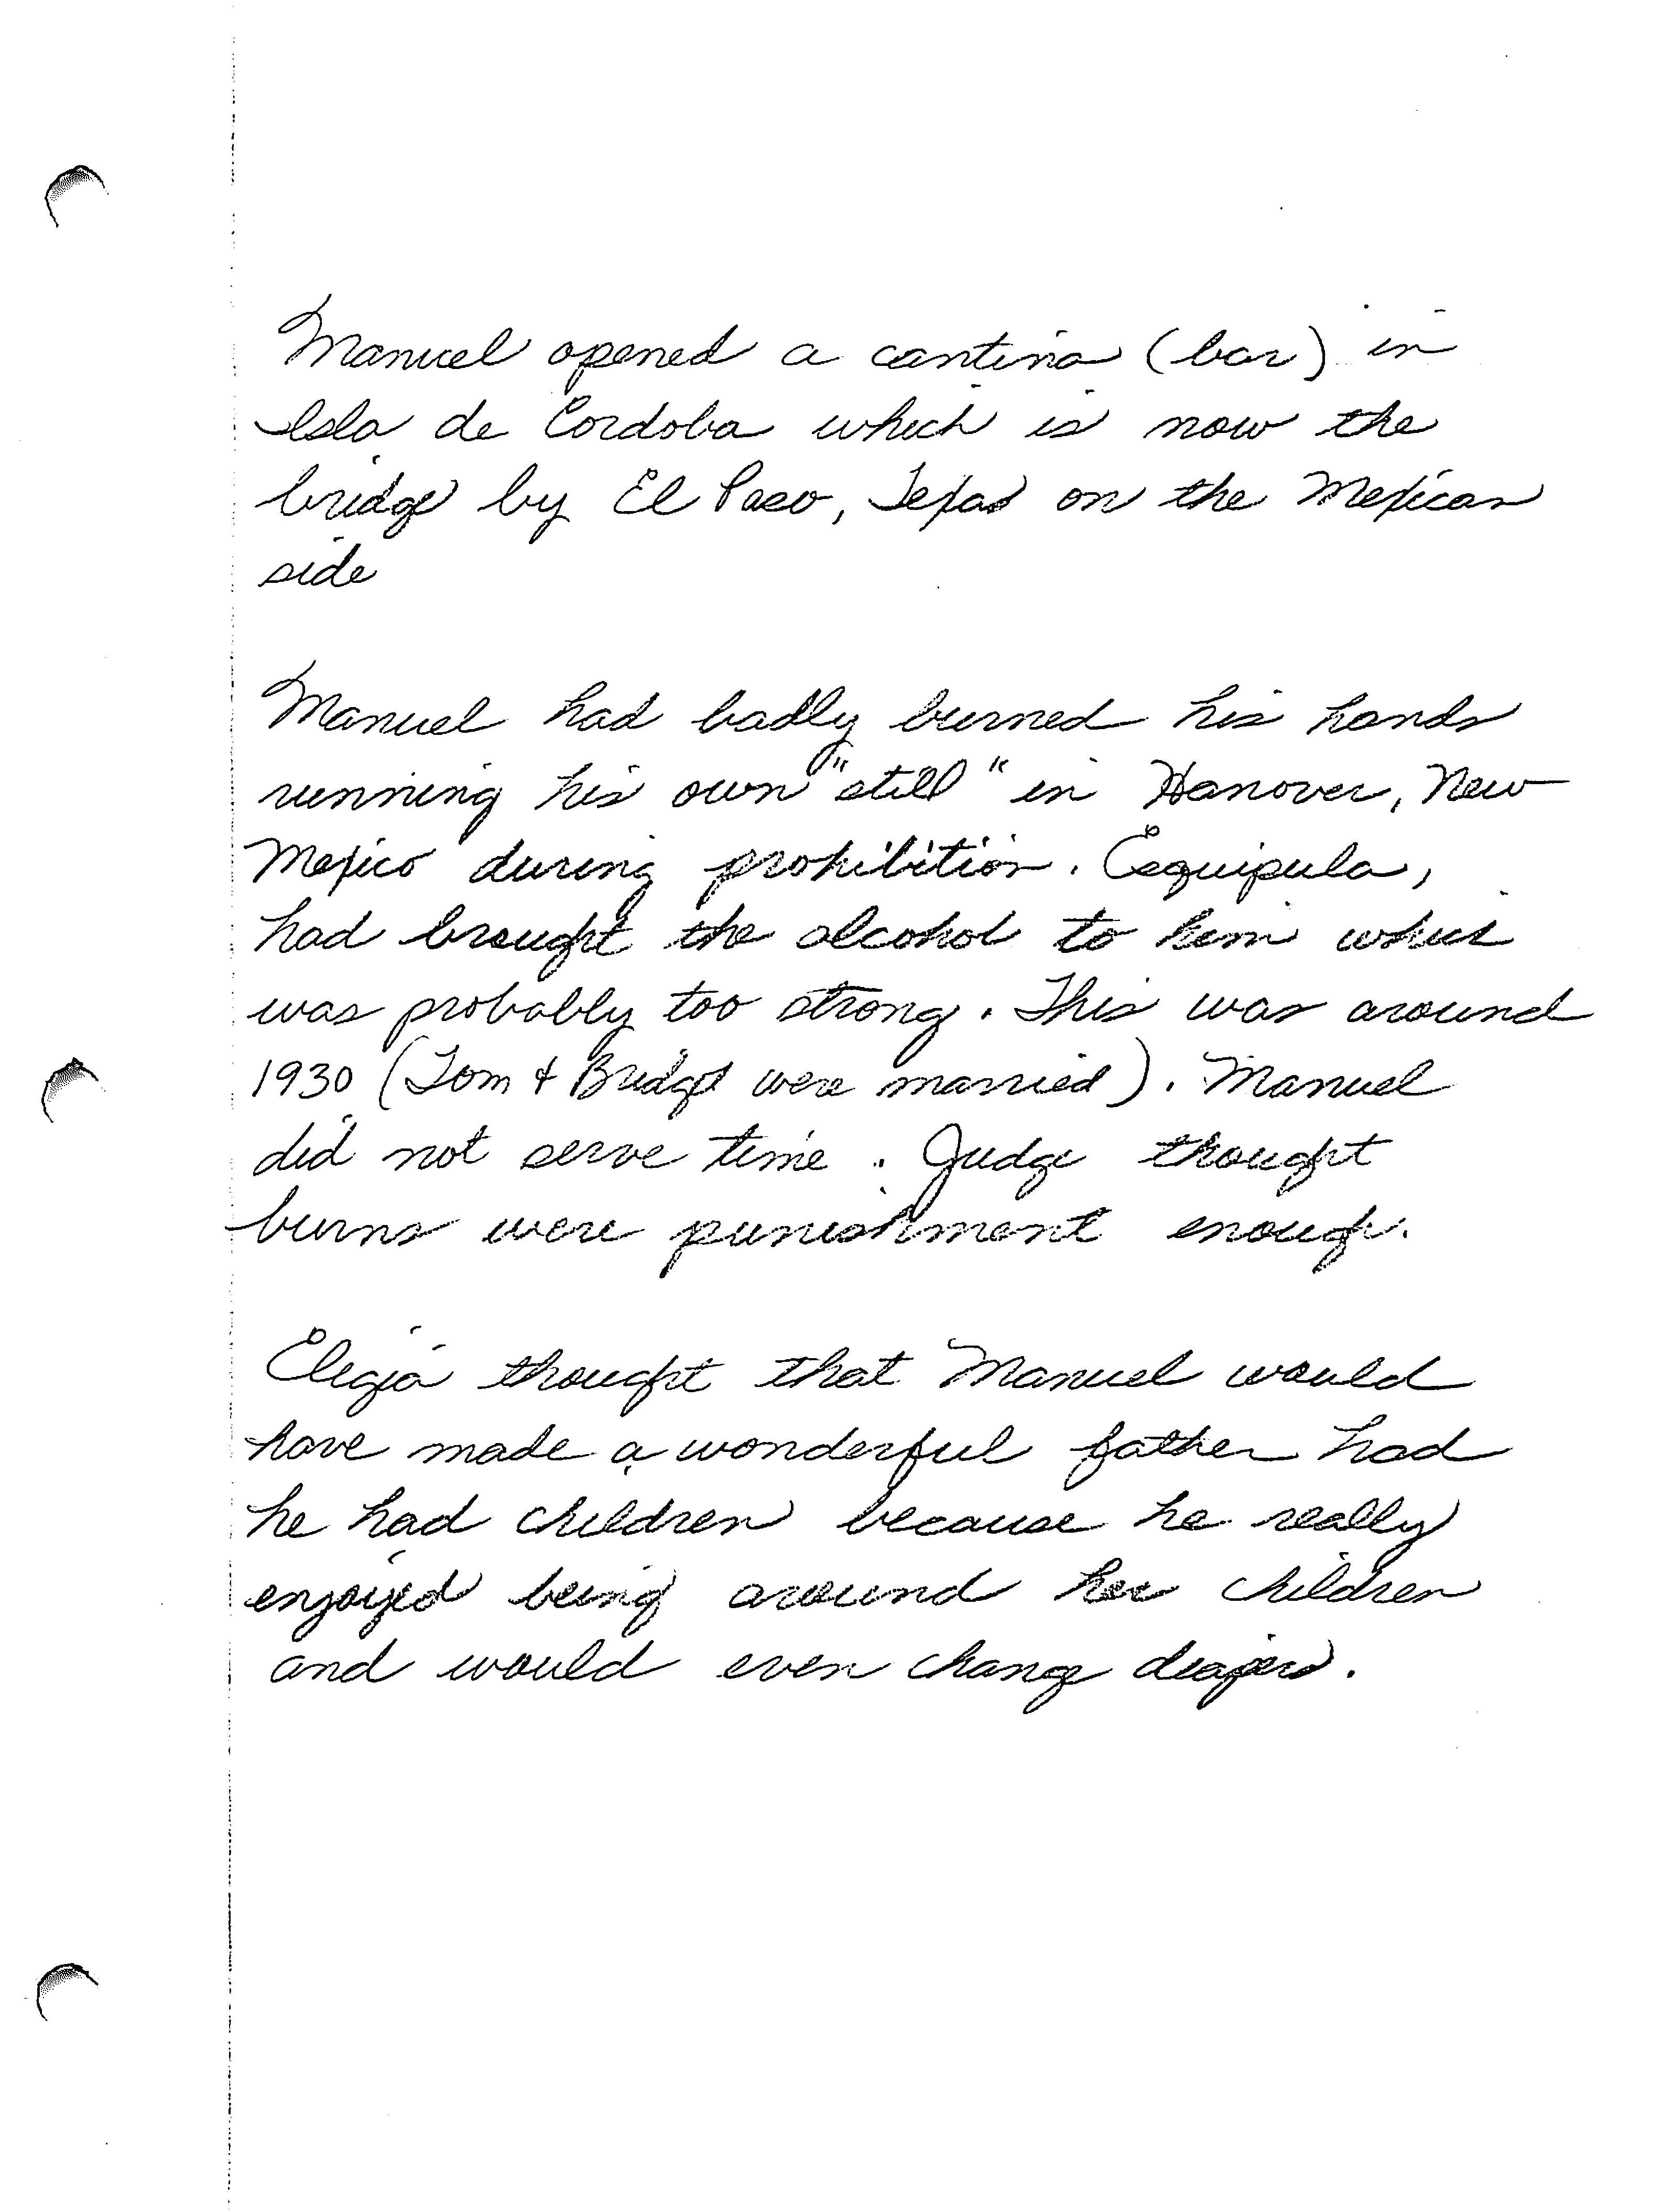 Manuel opened a cantina (bar) in
Isla de Cordoba which is now the
bridge by El Paso, Texas on the Mexican
side
Manuel had badly burned his hands
running his own "still" in Hanover, New
Mexico during prohibition. Esquipula,
had brought the alcohol to him which
was probably too strong. This was around
1930 (Tom & Bridget were married). Manuel
did not serve time. Judge thought
burns were punishment enough.
Eligia thought that Manuel would
have made a wonderful father had
he had children because he really
enjoyed being around her children
and would even change diapers.